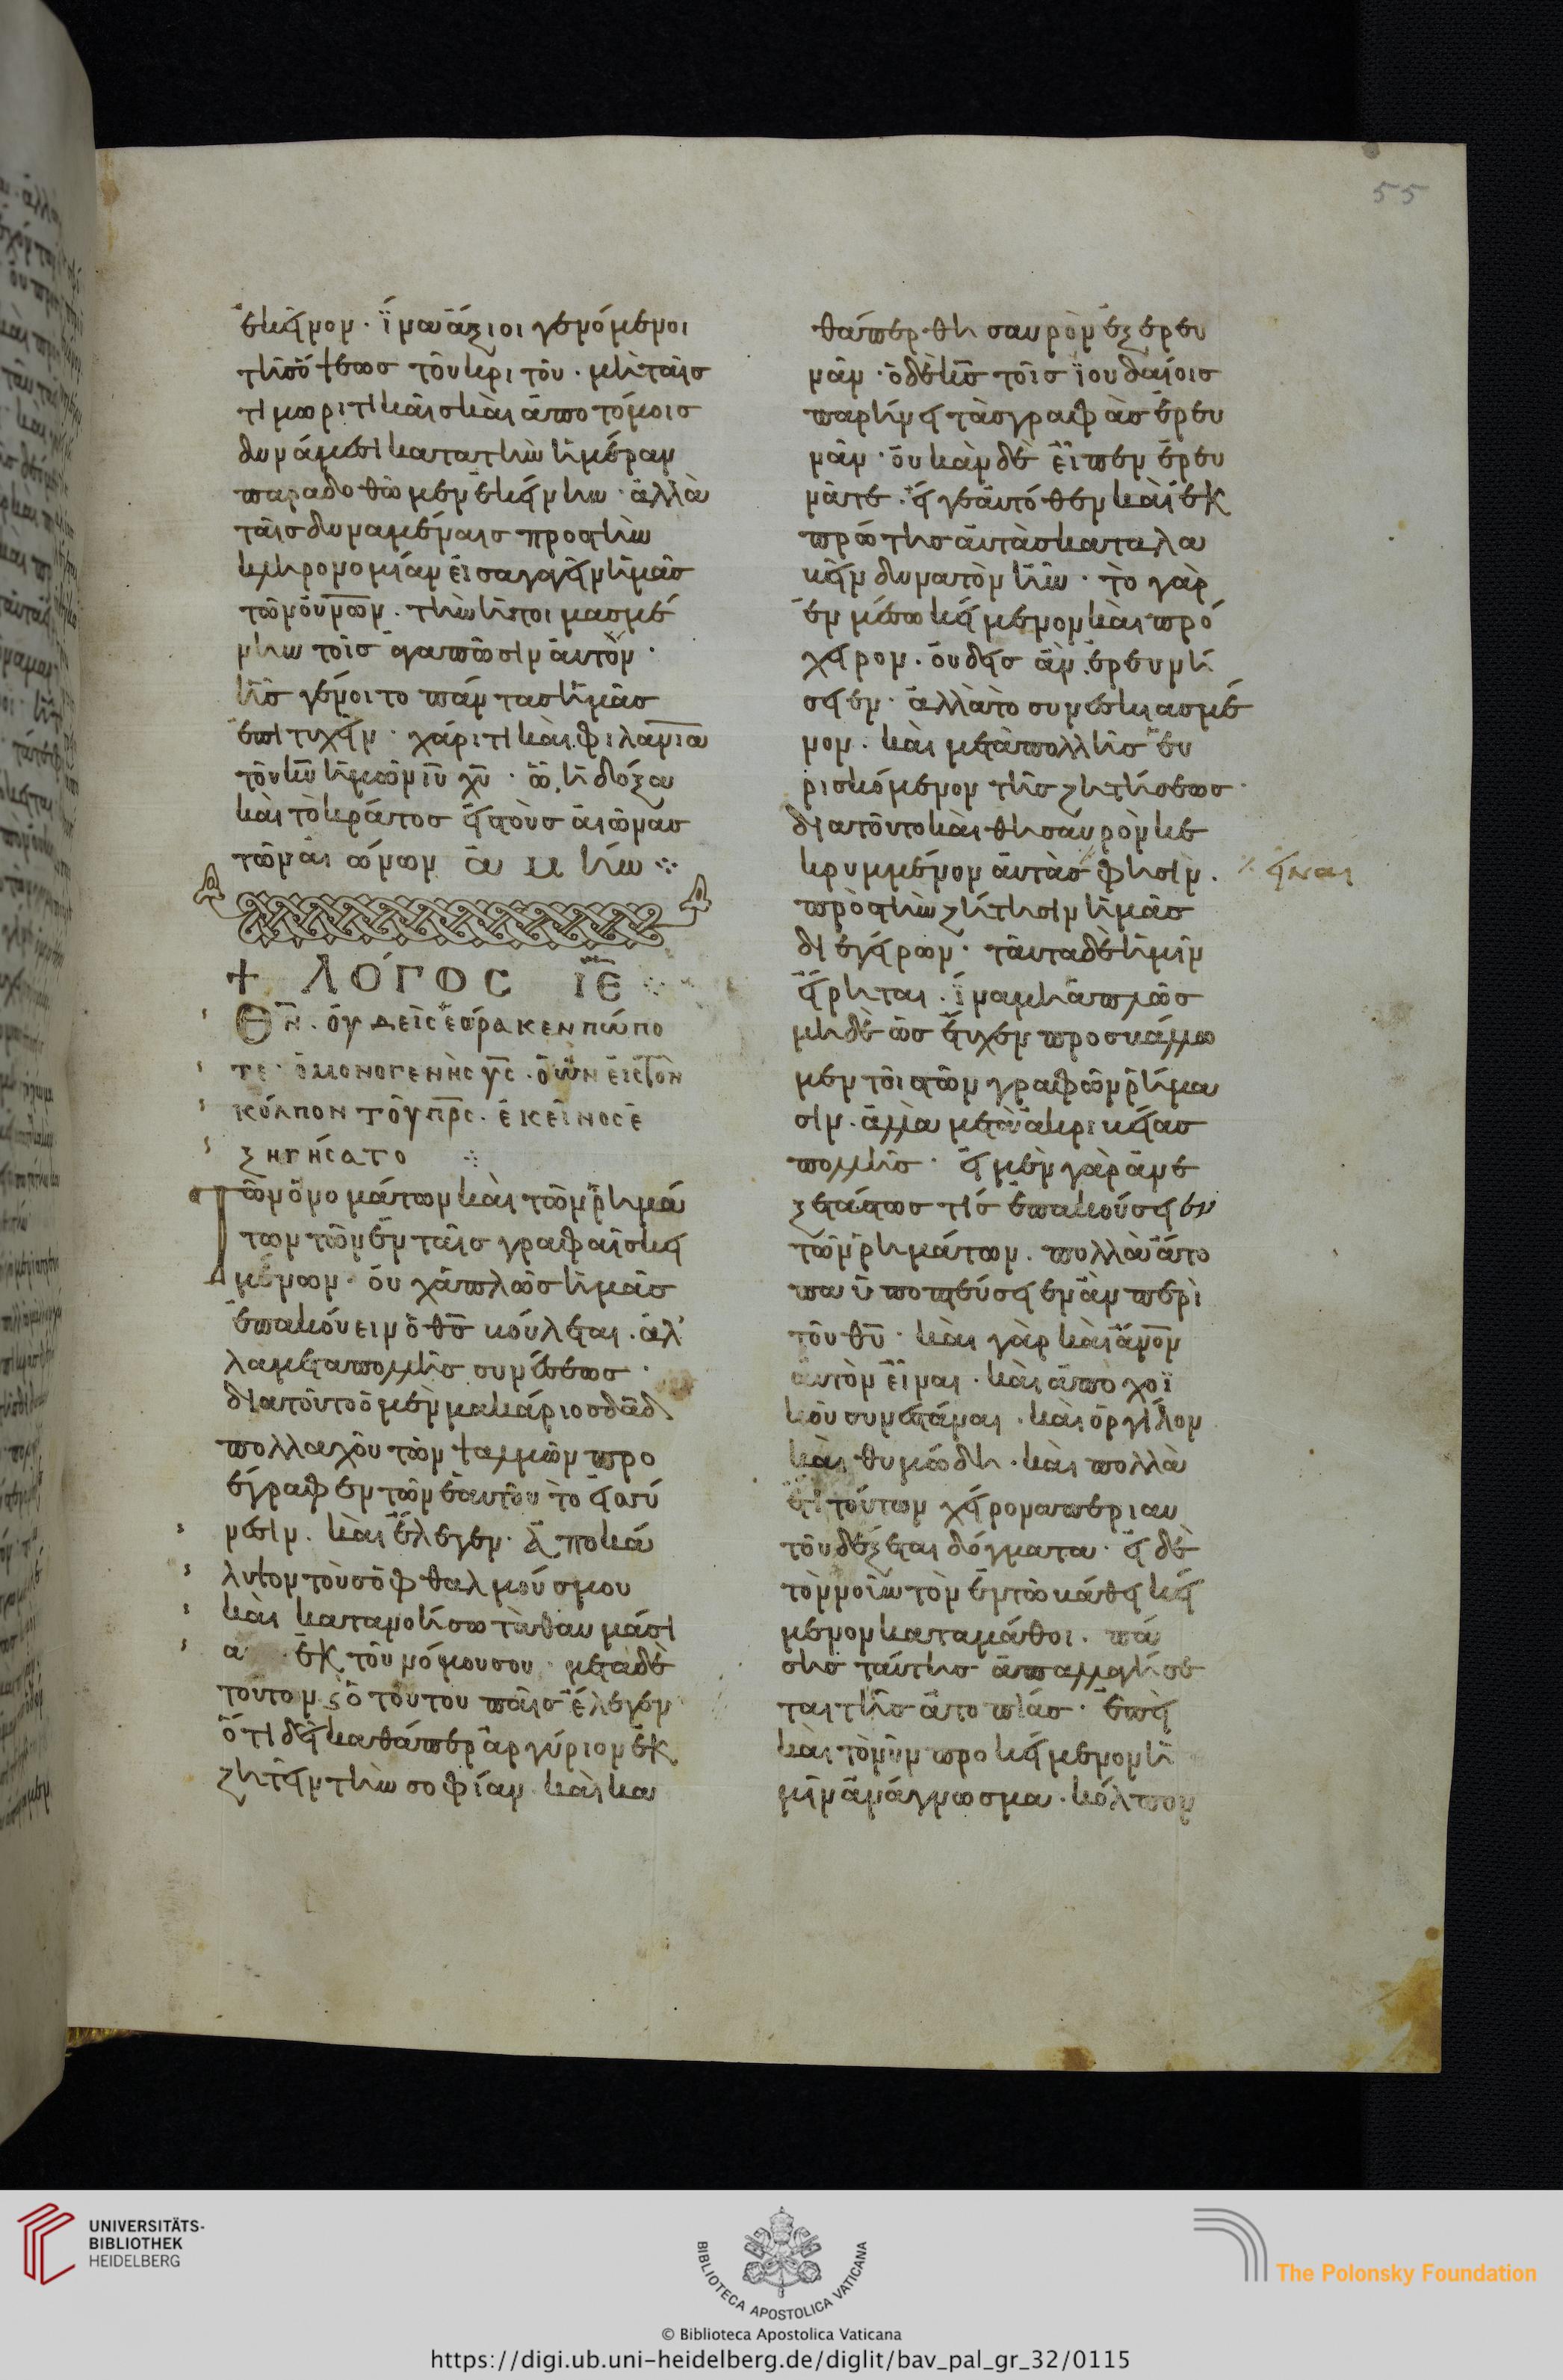 55
ἐκεῖνον · ἵνα ἄξιοι γενόμενοι
τῆς ὄψεως τοῦ κριτοῦ · μὴ ταῖς
τιμωριτικαῖς καὶ ἀποτόμοις
δυνάμεσι κατὰ τὴν ἡμέραν
παραδοθῶμεν ἐκείνην · ἀλλὰ
ταῖς δυναμέναις πρὸς τὴν
κληρονομίαν εἰσαγαγεῖν ἡμᾶς
τῶν οὐνῶν · τὴν ἡτοιμασμέ
νην τοῖς ἀγαπῶσιν αὐτόν ·
ἧς γένοιτο πάντας ἡμᾶς
ἐπιτυχεῖν · χάριτι καὶ φιλανία
τοῦ κυ ἡμῶν ιυ χυ · ᾧ ἡ δόξα
καὶ τὸ κράτος εἰς τοὺς αἰῶνας
τῶν αἰώνων ἀμήν
+ ΛΟΓΟC ΙΕ
Θν οὐδεὶς ἑώρακεν πώπο
τε · ὁ μονογενὴς υς · ὁ ὢν εἰς τὸν
κόλπον τοῦ πρς · ἐκεῖνος ἐ
ξηγήσατο
Τῶν ὀνομάτων καὶ τῶν ῥημά
των τῶν ἐν ταῖς γραφαῖς κει
μένων · οὐχ ἁπλῶς ἡμᾶς
ἐπακούειν ὁ θς βούλεται · ἀλ
λὰ μετὰ πολλῆς συνέσεως ·
διὰ τοῦτο ὁ μὲν μακάριος δαδ
πολλαχοῦ τῶν ψαλμῶν προ
έγραφεν τῶν ἑαυτοῦ τὸ εἰς σύ
νεσιν · καὶ ἔλεγεν · ἀποκά
λυψον τοὺς ὀφθαλμούς μου
καὶ κατανοήσω τὰ θαυμάσι
α ἐκ τοῦ νόμου σου · μετὰ δὲ
τοῦτον ὁ τούτου παῖς ἔλεγεν
ὅτι δεῖ καθάπερ ἀργύριον ἐκ
ζητεῖν τὴν σοφίαν · καὶ κα
θάπερ θησαυρὸν ἐξερευ
νᾶν · ὁ δὲ κς τοῖς ἰουδαίοις
παρήνει τὰς γραφὰς ἐρευ
νᾶν · οὐκ ἂν δὲ εἶπεν ἐρευ
νᾶτε · εἴ γε αὐτόθεν καὶ ἐκ
πρώτης αὐτὰς καταλα
βεῖν δυνατὸν ἦν · τὸ γὰρ
ἐν μέσω κείμενον καὶ πρό
χειρον · οὐδεὶς ἂν ἐρευνή
σειεν · ἀλλὰ τὸ συνεσκιασμέ
νον · καὶ μετὰ πολλῆς εὑ
ρισκόμενον τῆς ζητήσεως ·
διὰ τοῦτο καὶ θησαυρὸν κε
κρυμμένον αὐτάς φησιν ·
εἶναι
πρὸς τὴν ζήτησιν ἡμᾶς
διεγείρων · ταῦτα δὲ ἡμῖν
εἴρηται · ἵνα μὴ ἁπλῶς
μηδὲ ὡς ἔτυχεν προσβάλλω
μεν τοῖς τῶν γραφῶν ῥήμα
σιν · ἀλλὰ μετὰ ἀκριβείας
πολλῆς · εἰ μὲν γὰρ ἀνε
ξετάστως τίς ἐπακούσειεν
τῶν ῥημάτων · πολλὰ ἄτο
πα ὑποπτεύσειεν ἂν περὶ
τοῦ θυ · καὶ γὰρ καὶ ἄνον
αὐτὸν εἶναι · καὶ ἀπὸ χοϊ
κοῦ συνεστάναι · καὶ ὀργίλον
καὶ θυμώδη · καὶ πολλὰ
ἔτι τούτων χείρονα περὶ αὐ
τοῦ δέξεται δόγματα · εἰ δὲ
τὸν νοῦν τὸν ἐν τῶ βάθει κεί
μενον καταμάθοι · πά
σης ταύτης ἀπαλλαγήσε
ται τῆς ἀτοπίας · ἐπεὶ
καὶ τὸ νῦν προκείμενον ἡ
μῖν ἀνάγνωσμα · κόλπον
UNIVERSITÄTS-
BIBLIOTHEK
HEIDELBERG
BIBLIOTECA APOSTOLICA VATICANA
The Polonsky Foundation
© Biblioteca Apostolica Vaticana
https://digi.ub.uni-heidelberg.de/diglit/bav_pal_gr_32/0115